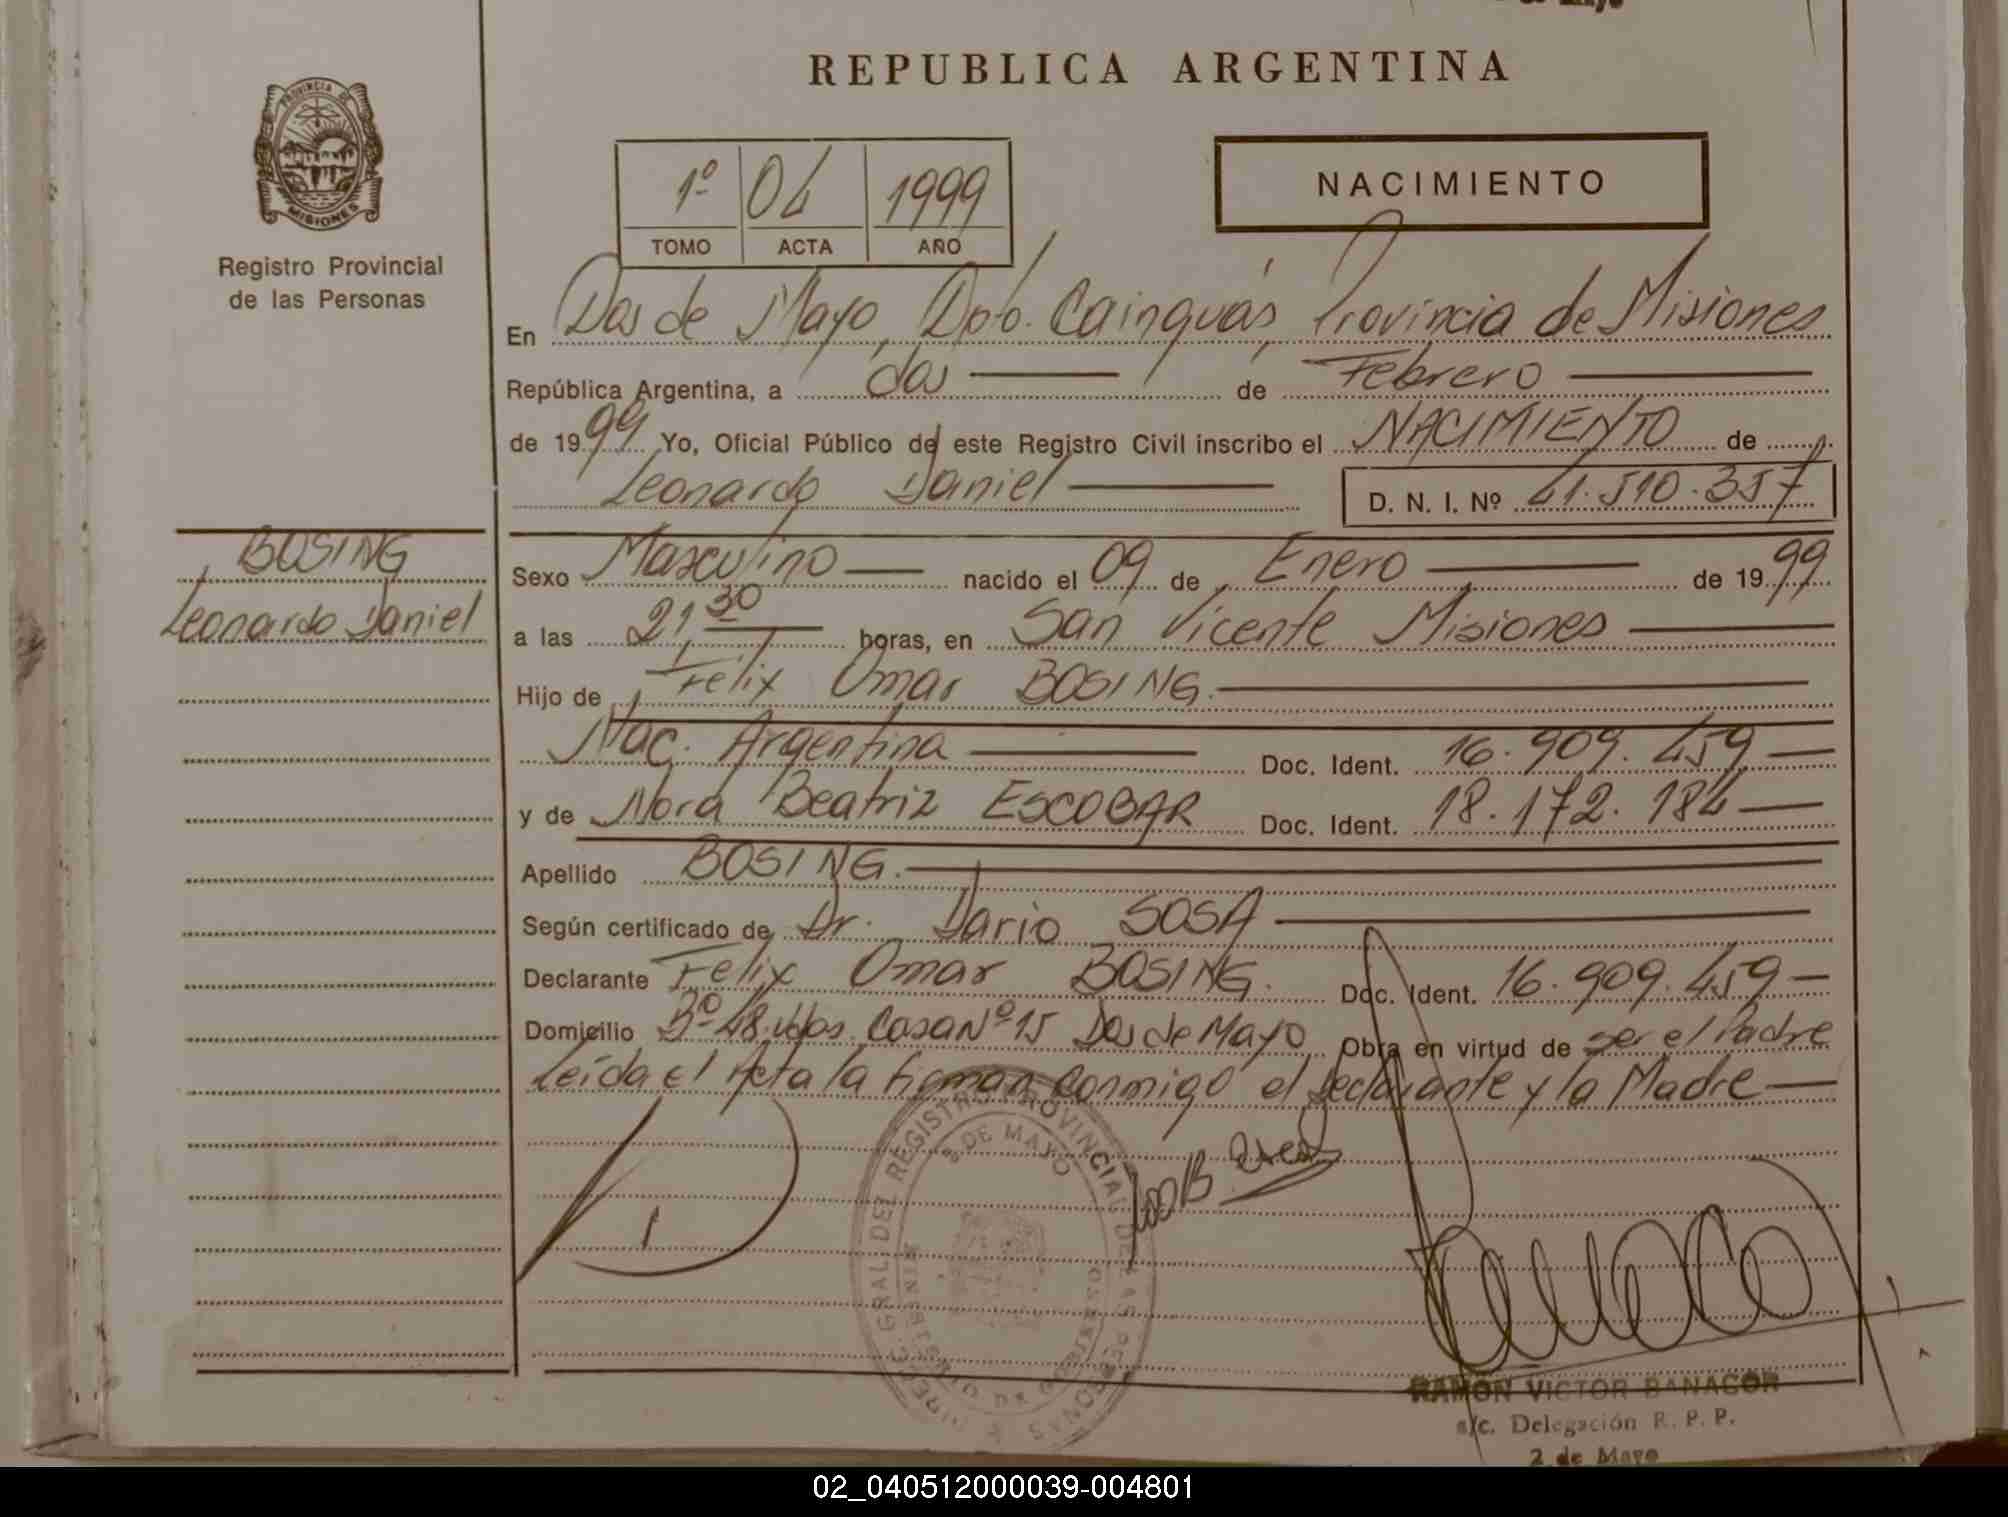 REPUBLICA ARGENTINA
PROVINCIA DE
MISIONES
Registro Provincial
de las Personas
1º 04 1999
TOMO ACTA AÑO
NACIMIENTO
En Dos de Mayo, Dpto. Cainguás, Provincia de Misiones
República Argentina, a dos de Febrero
de 1999 Yo, Oficial Público del este Registro Civil inscribo el NACIMIENTO de
Leonardo Daniel D. N. I. Nº 41.510.357
BOSING
Leonardo Daniel
Sexo Masculino nacido el 09 de Enero de 1999
a las 21,30 horas, en San Vicente Misiones
Hijo de Felix Omar BOSING.
Nac. Argentina Doc. Ident. 16.909.459
y de Nora Beatriz ESCOBAR Doc. Ident. 18.172.184
Apellido BOSING.
Según certificado de Dr. Dario SOSA
Declarante Felix Omar BOSING. Doc. Ident. 16.909.459
Domicilio Bº 48 Vdas. Casa Nº 15 Dos de Mayo Obra en virtud de ser el Padre
Leída el Acta la firman conmigo el declarante y la Madre
DIREC. GRAL. DEL REGISTRO PROVINCIAL DE LAS PERSONAS
DE MAYO
MINISTERIO DE GOBIERNO
RAMON VICTOR BANACOR
a/c. Delegación R. P. P.
2 de Mayo
02_040512000039-004801